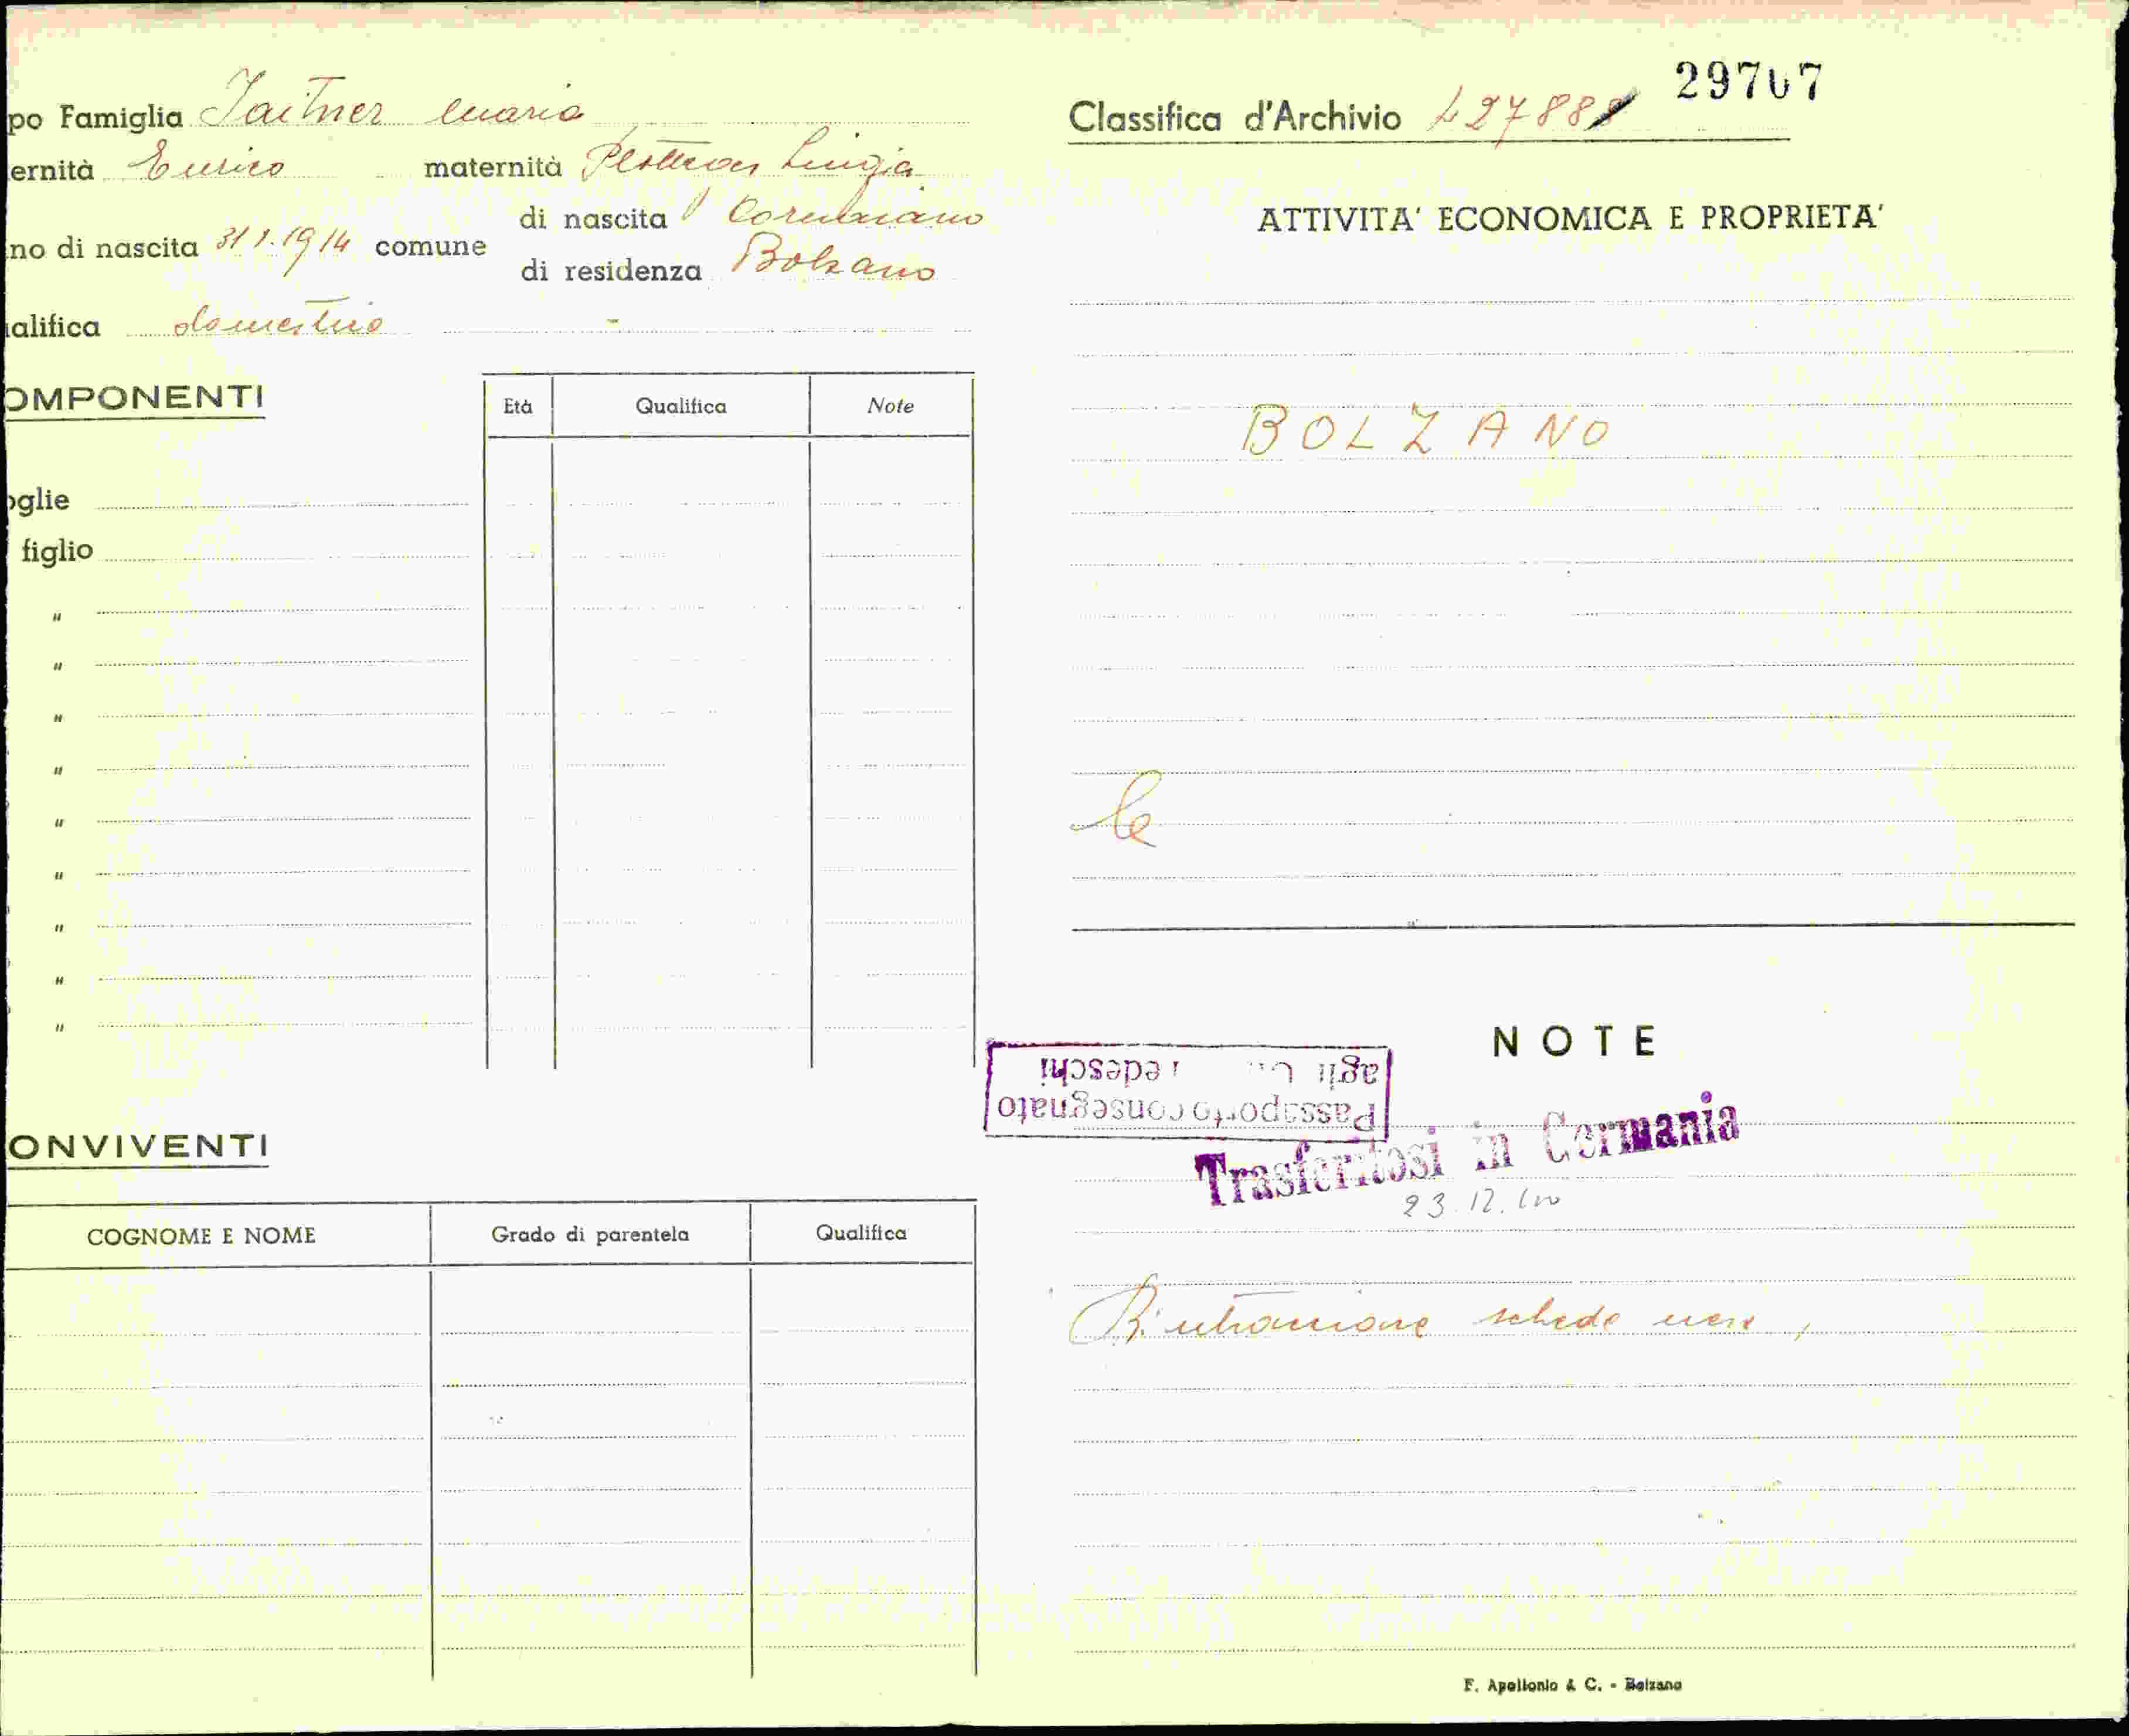 po Famiglia Jaitner Maria
ernità Enrico maternità Luigia
di nascita Cornaiano
no di nascita 31 1. 1914 comune
di residenza Bolzano
alifica domestica
OMPONENTI
Età Qualifica Note
oglie
figlio
"
"
"
"
"
"
"
"
"
ONVIVENTI
COGNOME E NOME Grado di parentela Qualifica
Classifica d'Archivio 29707
ATTIVITA' ECONOMICA E PROPRIETA'
BOLZANO
NOTE
Passaporto consegnato
agli Tedeschi
Trasferitosi in Germania
23.12.
schede
F. Apollonio & C. - Bolzano